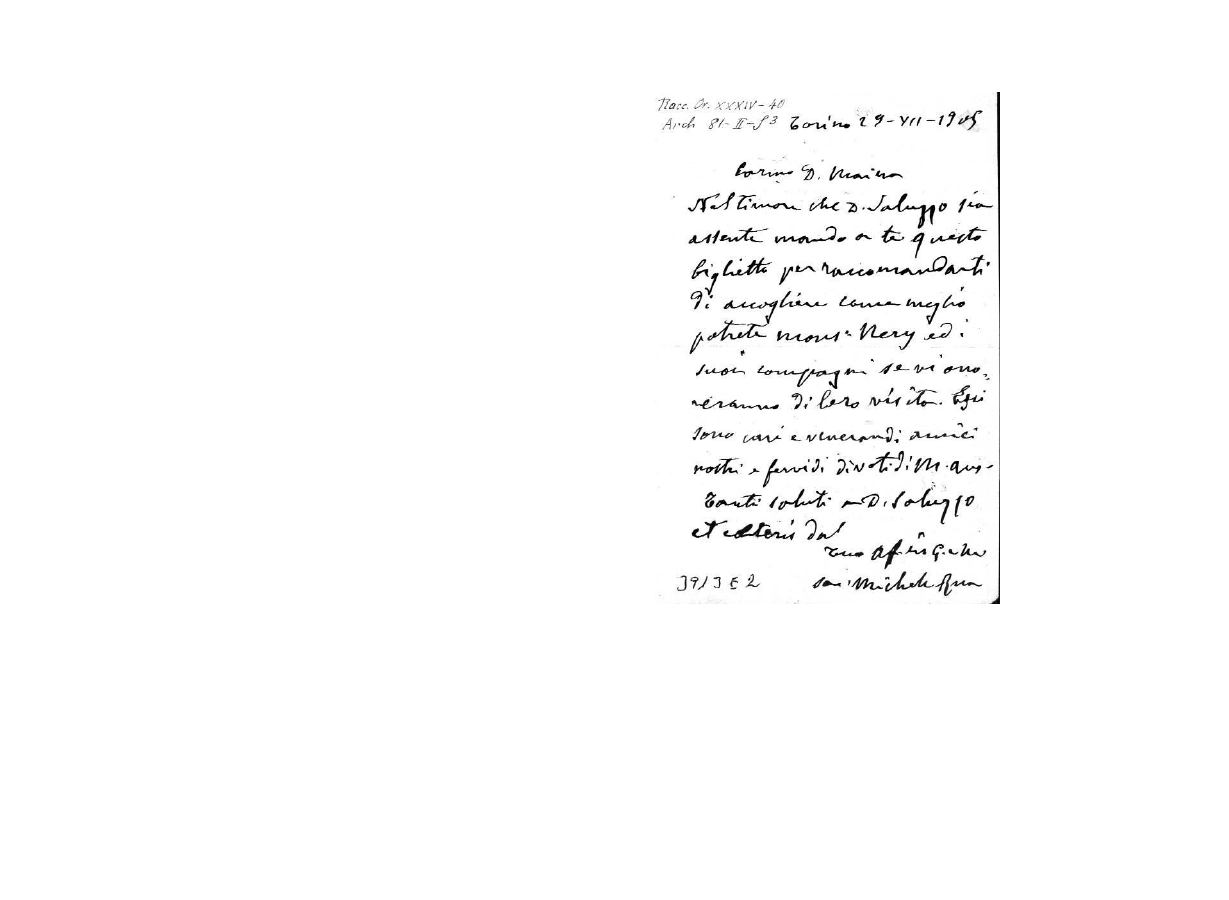 Racc. Or. XXXIV-40
Arch 81-II-
Torino 29-VII-1905
Carino D.
Nel timore che D. Saluzzo sia
assente mando a te questo
biglietto per raccomandarti
di accogliere come meglio
potrete mons.r Nery ed i
suoi compagni se vi ono-
reranno di loro visita. Essi
sono cari e venerandi amici
nostri e fervidi divoti di M. aus-
Tanti saluti a D. Saluzzo
et ceteris dal
Tuo aff in G. e M
sac. Michele Rua
3913 E 2